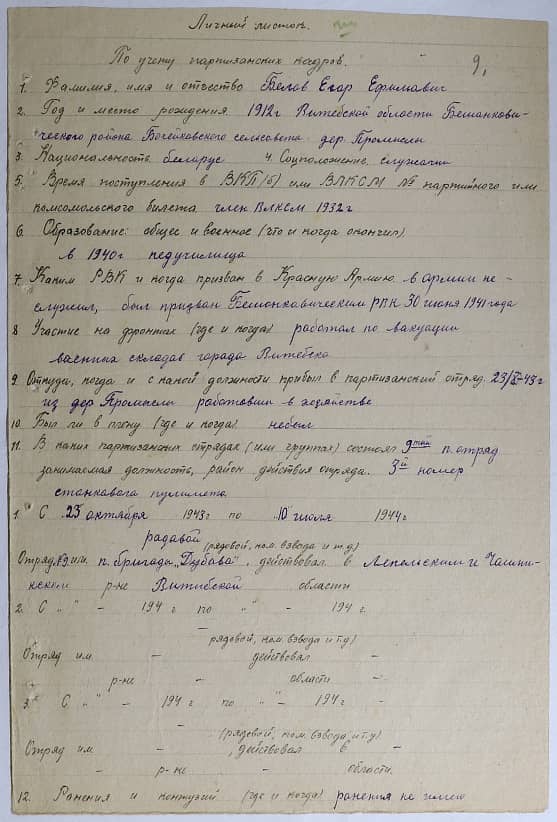 Личный листок.
По учету партизанских кадров. 9.
1. Фамилия, имя и отчество Белов Егор Ефимавич
2. Год и место рождения 1912г Витебской области Бешанкови-
ческого района Бочейковского сельсовета дер. Промыслы
3. Национальность беларус 4. Соцположение служащий
5. Время поступления в ВКП(б) или ВЛКСМ № партийного или
комсомольского билета член Влксм 1932г
6. Образование: общее и военное (что и когда окончил)
в 1940г педучилища
7. Каким РВК и когда призван в Красную Армию в армии не-
служил, был призван Бешонкавическим РВК 30 июня 1941года
8 Участие на фронтах (где и когда) работал по вакуации
ваеных складав города Витебска
9. Откуда, когда и с какой должности прибыл в партизанский отряд. 23/X-43г
из дер Промыслы работовши в хозяйстве
10. Был ли в плену (где и когда) небыл
11. В каких партизанских отрядах (или группах) состоял 9той п. отряд
занимаемая должность, район действия отряда. 3й номер
станкавага пулимета
1. С 23 октября 1943г по 10 июля 1944г.
радавой
(рядовой, ком. взвода и т.д)
Отряд №9 им. п. бригады "Дубава", действовал в Лепельским и Чашни-
кском р-не Витибской области
2. С " " - 194 г по " - 194 г.
- рядовой, ком. взвода и т.д)
Отряд им. - действовал -
- р-не - области -
3. С " " - 194 г по " - 194 г -
- (рядовой, ком. взвода, и т.д)
Отряд им - , действовал в -
- р-не - области.
12. Ранения и контузий (где и когда) ранения не имею